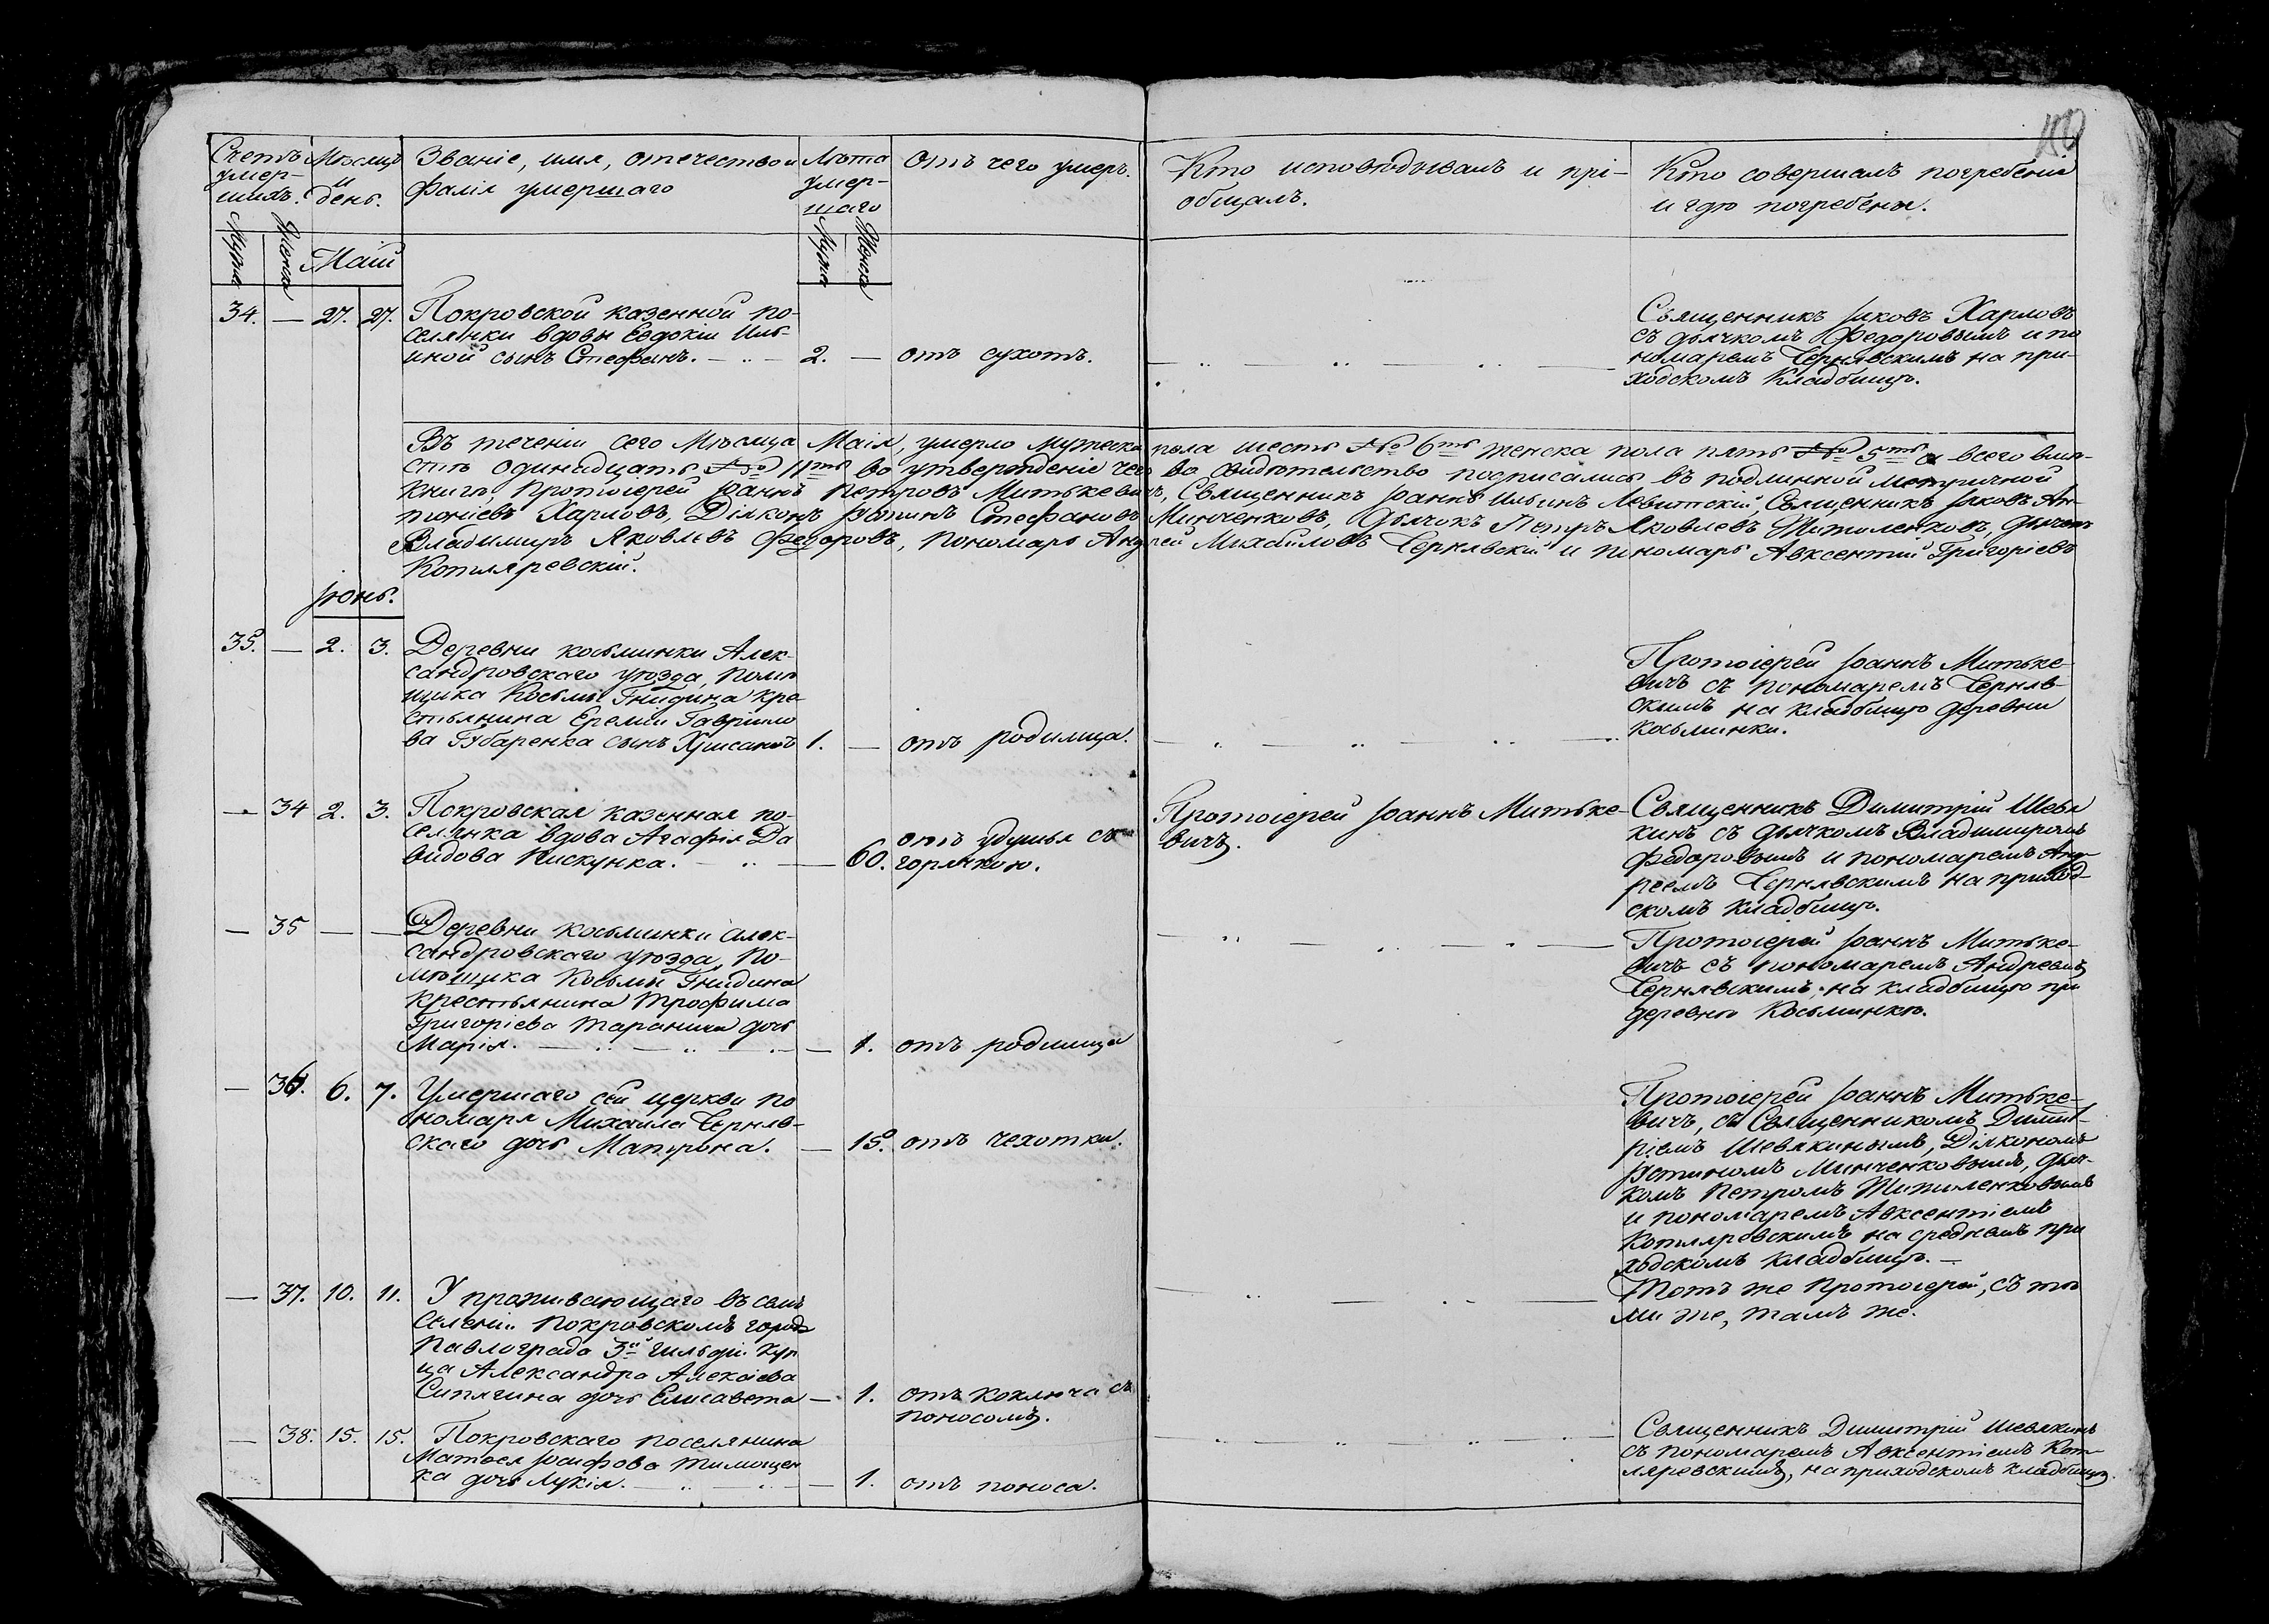 110
Счетъ умер-шихъ.
Мѣсяцъ и день.
Званіе, имя, отечество и
фамілія умершаго
Лѣта умер-шаго
Отъ чего умеръ.
Кто исповѣдывалъ и прі-
общалъ.
Кто совершалъ погребеніе
и гдѣ погребены.
Мужеска
Женска
Маій
Мужеска
Женска
34. — 27. 27. Покровской казенной по-
селянки вдовы Евдокіи Иль-
иной сынъ Стефанъ. — 2. — отъ сухотъ.
Священникъ Іаковъ Харловъ
съ дьячкомъ Федоровымъ и по
номаремъ Чернявскимъ на при-
ходскомъ кладбищѣ.
Въ теченіи сего Мѣсяца Маія, умерло мужеска пола шесть № 6ть женска пола пять № 5ть а всего вмѣ-
стѣ одинадцать № 11ть во утвержденіе чего во свидѣтельство подписались въ подлинной метричной
книгѣ, Протоіерей Іоаннъ Петровъ Митькевичъ, Священникъ Іоаннъ Ильинъ Левитскій, Священникъ Іаковъ Ан-
тоніевъ Харловъ, Діяконъ Іустинъ Стефановъ Минченковъ, Дьячокъ Петръ Яковлевъ Шипиленковъ, дьячокъ
Владимиръ Яковлевъ Федоровъ, Пономарь Андрей Михайловъ Чернявскій и пономарь Авксентий Григоріевъ
Котляревскій.
Іюнь.
35. — 2. 3. Деревни косьминки Алек-
сандровскаго уѣзда, помѣ
щика Косьмы Гнидина кре-
стьянина Еремии Гаврило
ва Губаренка сынъ Хрисанѳъ 1. — отъ родимца.
Протоіерей Іоаннъ Митьке-
вичъ съ пономаремъ Черняв-
скимъ на кладбищѣ деревни
косьминки.
— 34 2. 3. Покровская казенная по-
селянка вдова Агафія Да
видова Пискунка. — 60. отъ удушья съ
горячкою.
Протоіерей Іоаннъ Митьке-
вичъ.
Священникъ Димитрій Шевя
кинъ съ дьячкомъ Владимиромъ
Федоровымъ и пономаремъ Анд-
реемъ Чернявскимъ на приход-
скомъ кладбищѣ.
— 35 — — Деревни косьминки Алек-
сандровскаго уѣзда, по-
мѣщика Косьмы Гнидина
крестьянина Трофима
Григоріева дочь
Марія. — 1. отъ родимца
Протоіерей Іоаннъ Митьке-
вичъ съ пономаремъ Андреемъ
Чернявскимъ, на кладбищѣ при
деревнѣ Косьминкѣ.
— 36. 6. 7. Умершаго сей церкви по
номаря Михаила Черняв-
скаго дочь Матрона. — 15. отъ чехотки.
Протоіерей Іоаннъ Митьке-
вичъ, съ Священникомъ Димит-
ріемъ Шевякинымъ, Діякономъ
Іустиномъ Минченковымъ, дьяч-
комъ Петромъ Шипиленковымъ
и пономаремъ Авксентіемъ
Котляревскимъ на среднемъ при
ходскомъ кладбищѣ. —
— 37. 10. 11. У проживающаго въ семъ
селении Покровскомъ города
Павлограда 3й гильдіи куп
ца Александра Алексіева
Сипягина дочь Елисавета — 1. отъ коключа съ
поносомъ.
Тотъ же Протоіерей, съ тѣ
ми же, тамъ же.
— 38. 15. 15. Покровскаго поселянина
Матѳея Іосифова Тимощен
ка дочь Лукія. — 1. отъ поноса.
Священникъ Димитрій Шевякинъ
съ пономаремъ Авксентіемъ Кот-
ляревскимъ, на приходскомъ кладбищѣ.